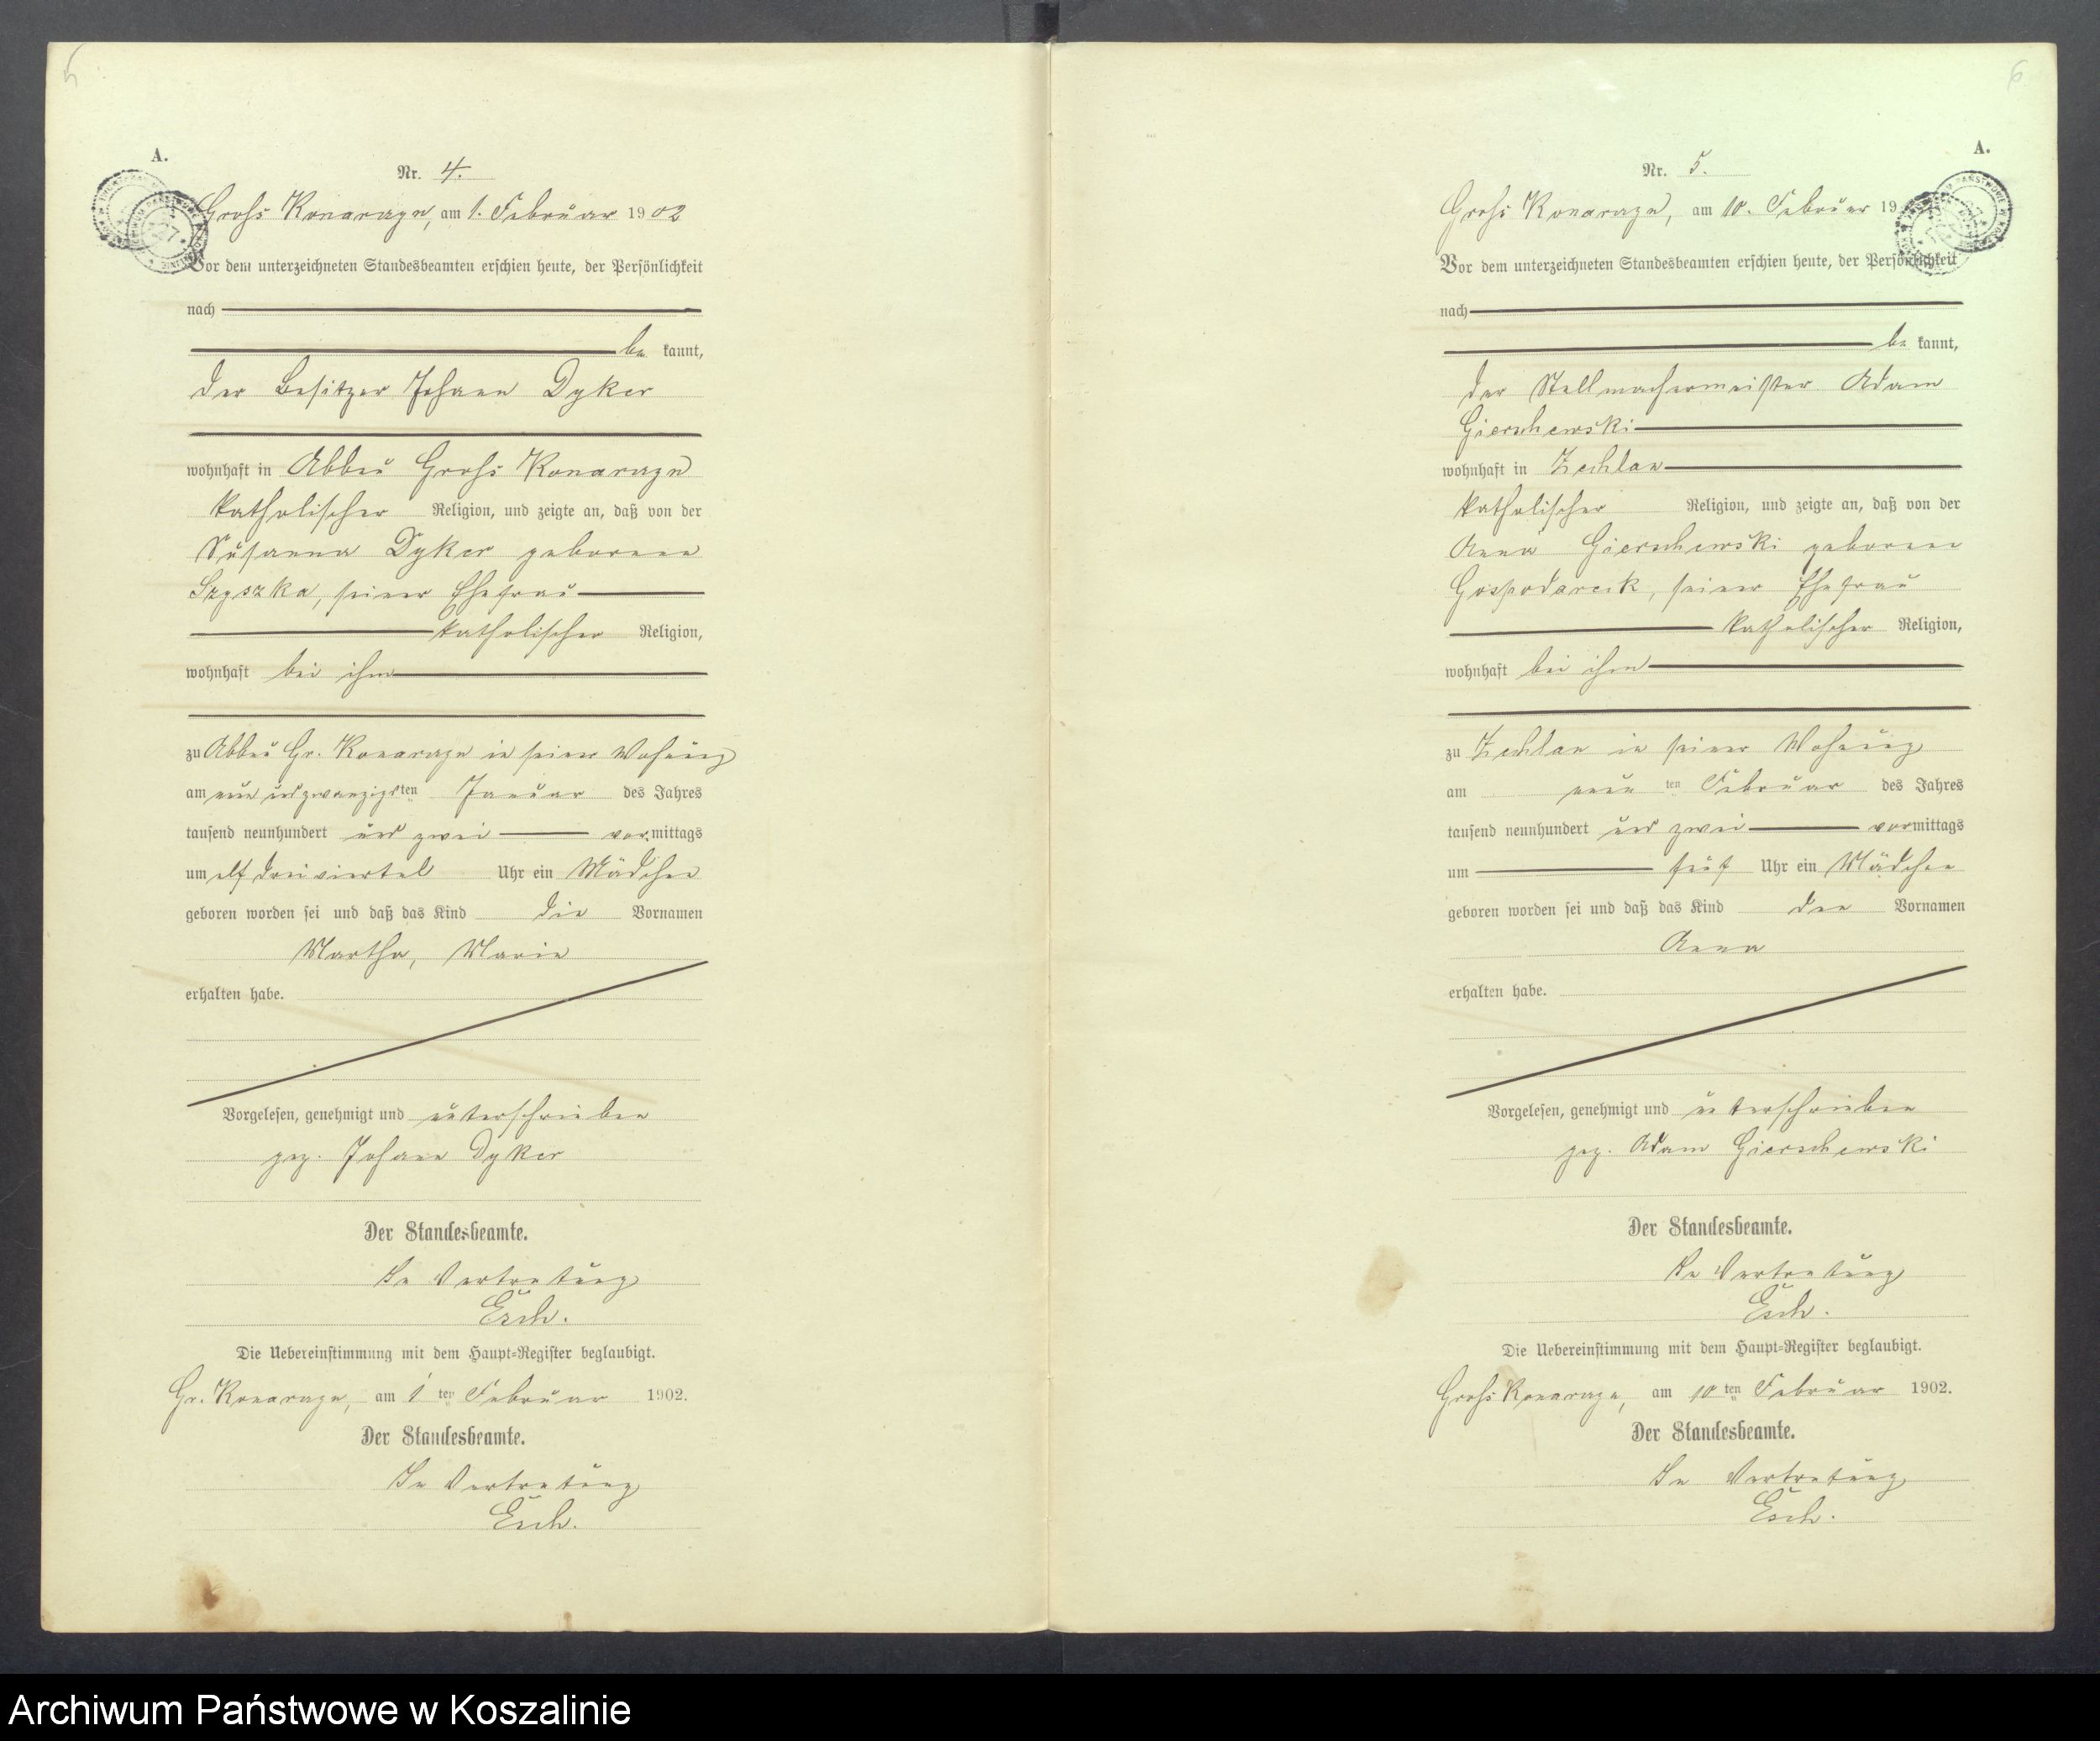 A.
Nr. 4.
Gross Konarzyn, am 1. Februar 1902
Vor dem unterzeichneten Standesbeamten erschien heute, der Persönlichkeit
nach
be kannt,
der Besitzer Johann Dyker
wohnhaft in Abbau Gross Konarzyn
katholischer Religion, und zeigte an, daß von der
Susanna Dyker geborenen
Szyszka, seiner Ehefrau
katholischer Religion,
wohnhaft bei ihm
zu Abbau Gr. Konarzyn in seiner Wohnung
am neun und zwanzigsten Januar des Jahres
tausend neunhundert und zwei vormittags
um elf dreiviertel Uhr ein Mädchen
geboren worden sei und daß das Kind die Vornamen
Martha, Marie
erhalten habe.
Vorgelesen, genehmigt und unterschrieben
gez. Johann Dyker
Der Standesbeamte.
In Vertretung
Esch.
Die Uebereinstimmung mit dem Haupt-Register beglaubigt.
Gr. Konarzyn, am 1ten Februar 1902.
Der Standesbeamte.
In Vertretung
Esch.
6
A.
Nr. 5.
Gross Konarzyn, am 10. Februar 19
Vor dem unterzeichneten Standesbeamten erschien heute, der Persönlichkeit
nach
be kannt,
der Stellmachermeister Adam
Gierschewski
wohnhaft in Zechlau
katholischer Religion, und zeigte an, daß von der
Anna Gierschewski geborenen
Gospodarek, seiner Ehefrau
katholischer Religion,
wohnhaft bei ihm
zu Zechlau in seiner Wohnung
am neunten Februar des Jahres
tausend neunhundert und zwei vormittags
um fünf Uhr ein Mädchen
geboren worden sei und daß das Kind den Vornamen
Anna
erhalten habe.
Vorgelesen, genehmigt und unterschrieben
gez. Adam Gierschewski
Der Standesbeamte.
In Vertretung
Esch.
Die Uebereinstimmung mit dem Haupt-Register beglaubigt.
Gross Konarzyn, am 10ten Februar 1902.
Der Standesbeamte.
In Vertretung
Esch.
Archiwum Państwowe w Koszalinie